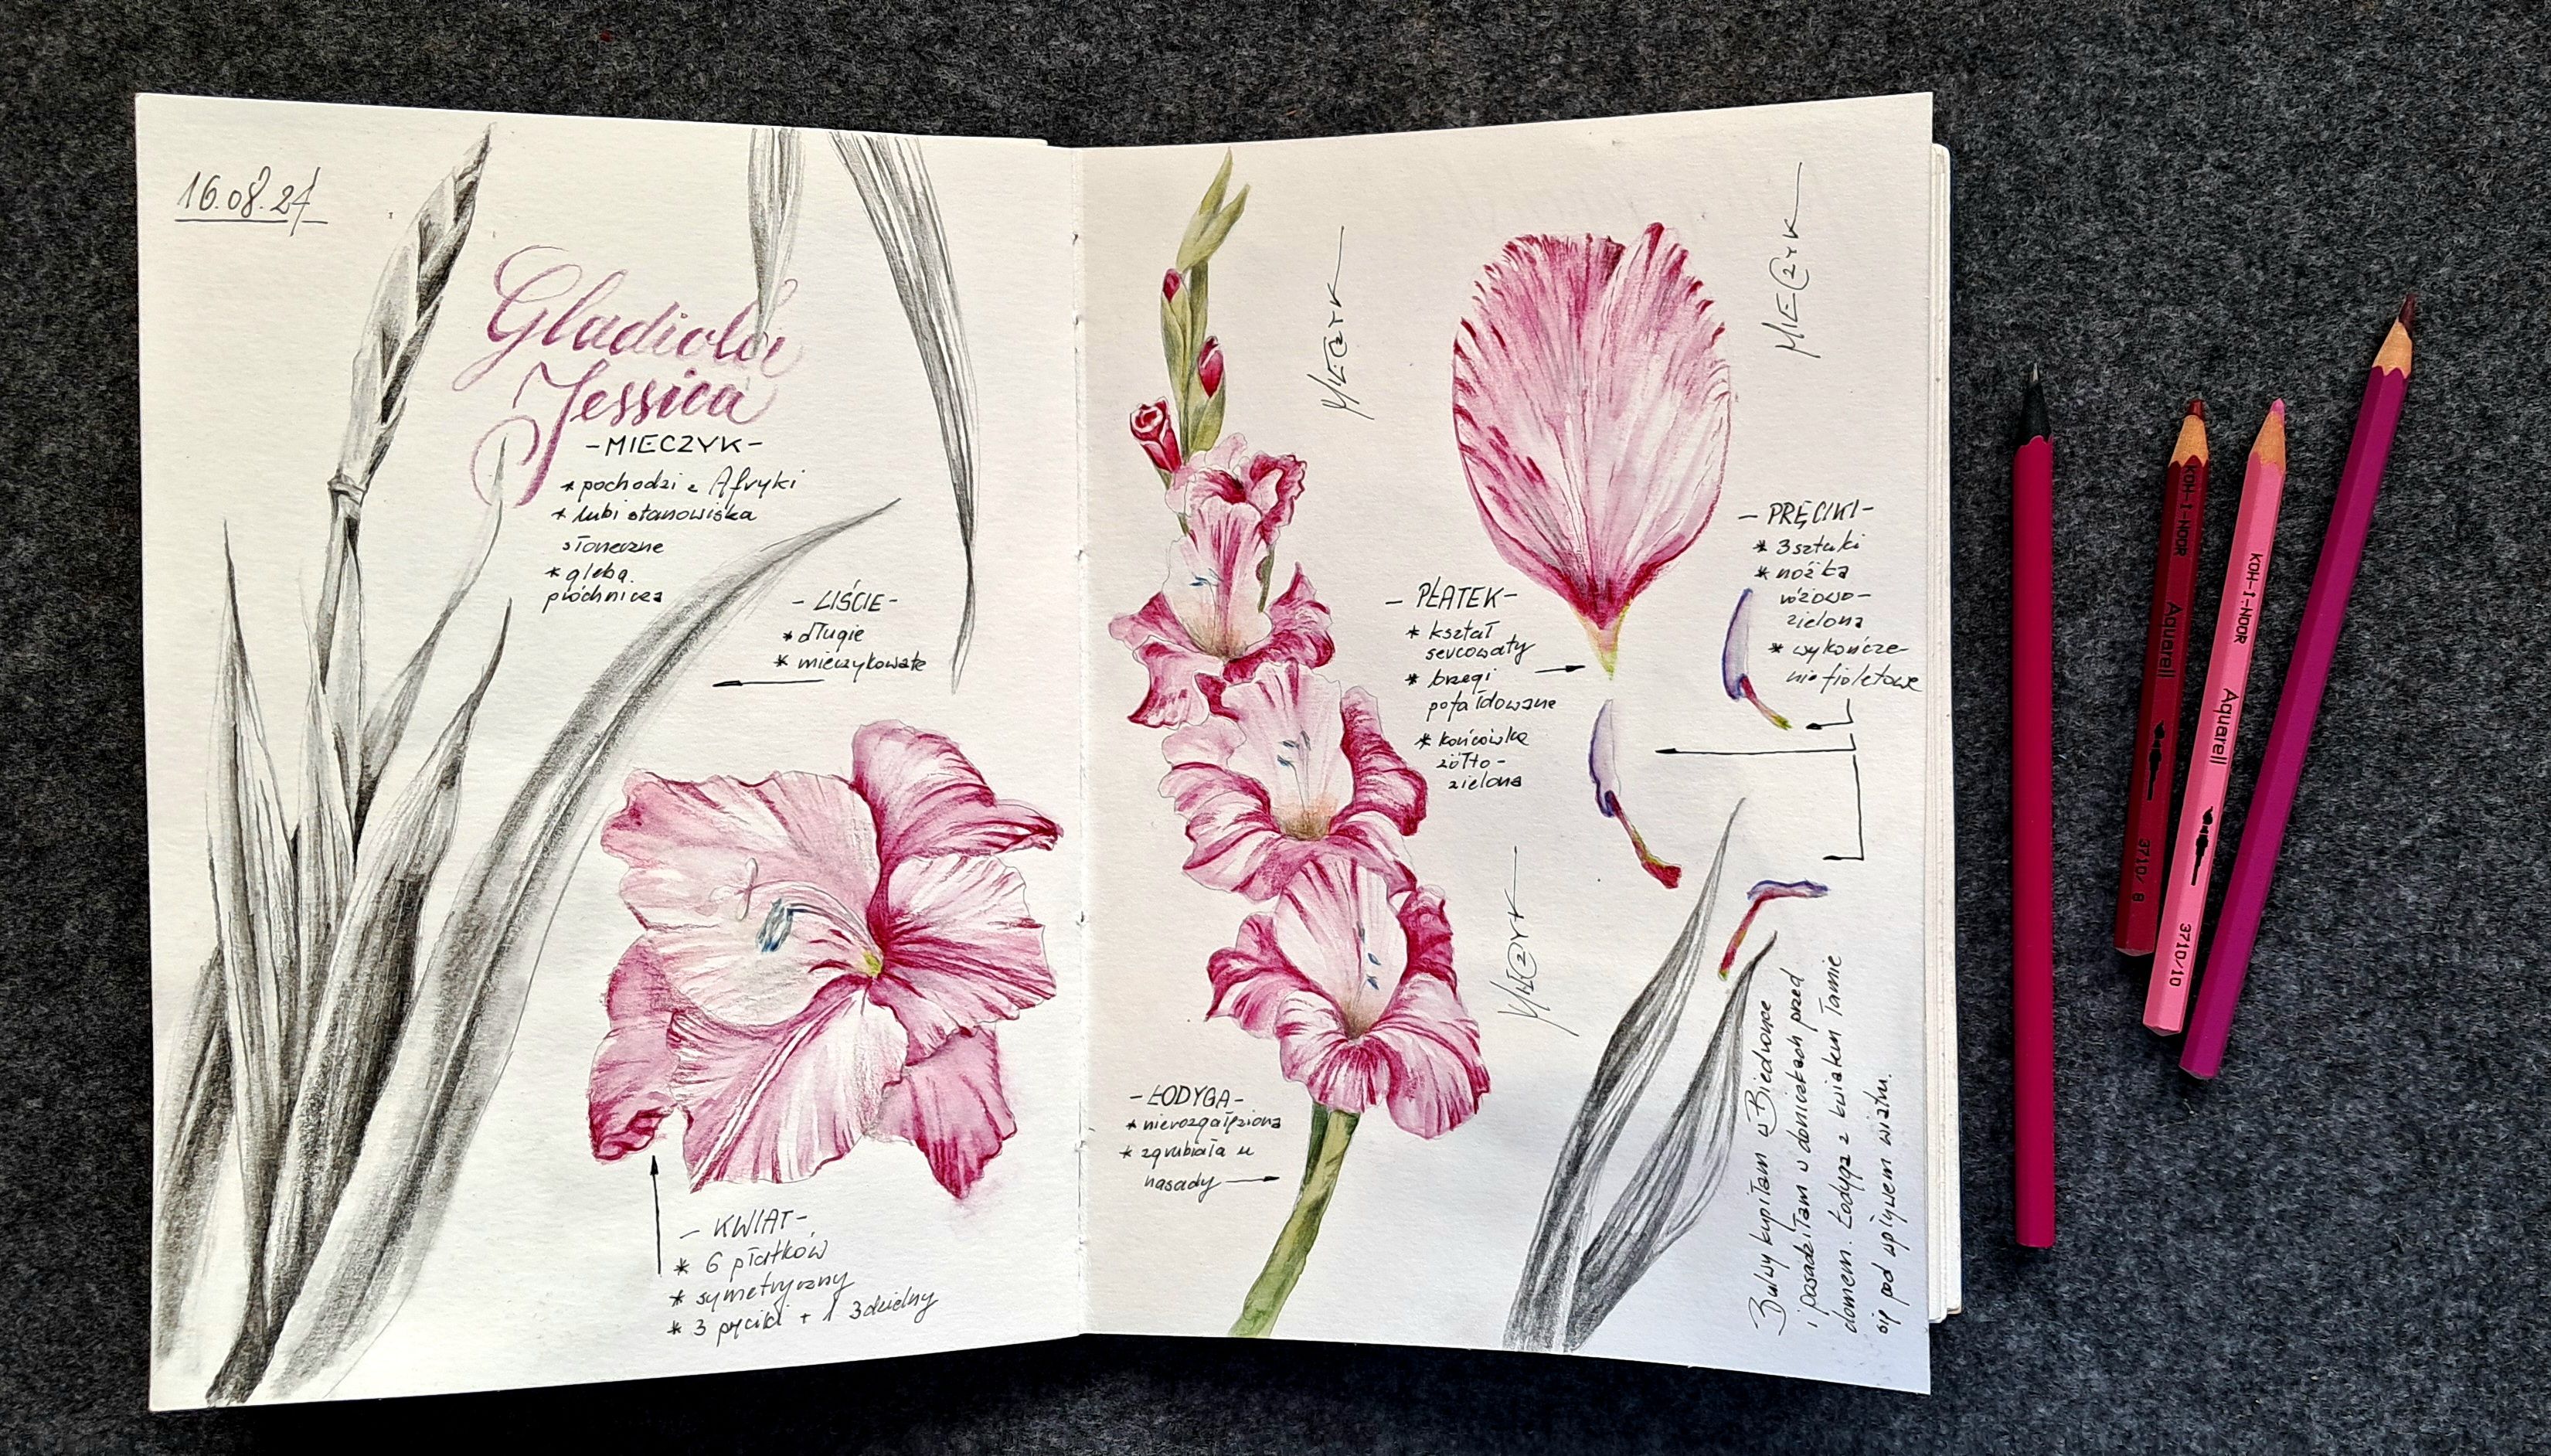 16.08.24
Gladiola
Jessica
- MIECZYK -
* pochodzi z Afryki
* lubi stanowiska
słoneczne
* gleba
próchnicza
- LIŚCIE -
* długie
* mieczykowate
- KWIAT -
* 6 płatków
* symetryczny
* 3 pręciki + 1 3dzielny
MIECZYK
MIECZYK
- PRĘCIKI -
* 3 sztuki
* nóżka
różowo-
zielona
* wykończe-
nie fioletowe
- PŁATEK -
* kształ
sercowaty
* brzegi
pofałdowane
* końcówka
żółto-
zielona
MIECZYK
- ŁODYGA -
* nierozgałęziona
* zgrubiała u
nasady
Bulwy kupiłam w Biedronce
i posadziłam w doniczkach przed
domem. Łodyga z kwiatem łamie
się pod wpływem wiatru.
KOH-I-NOOR Aquarell 3710/8
KOH-I-NOOR Aquarell 3710/10